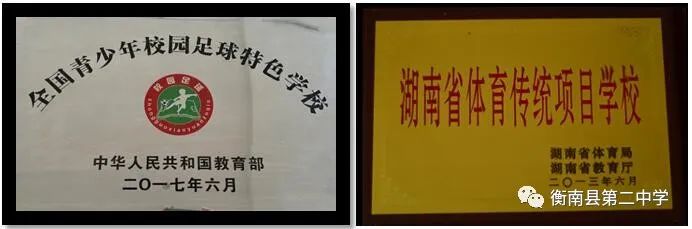 全国青少年校园足球特色学校
校园足球
中华人民共和国教育部
二〇一七年六月
湖南省体育传统项目学校
湖南省体育局
湖南省教育厅
二〇一三年六月
衡南县第二中学